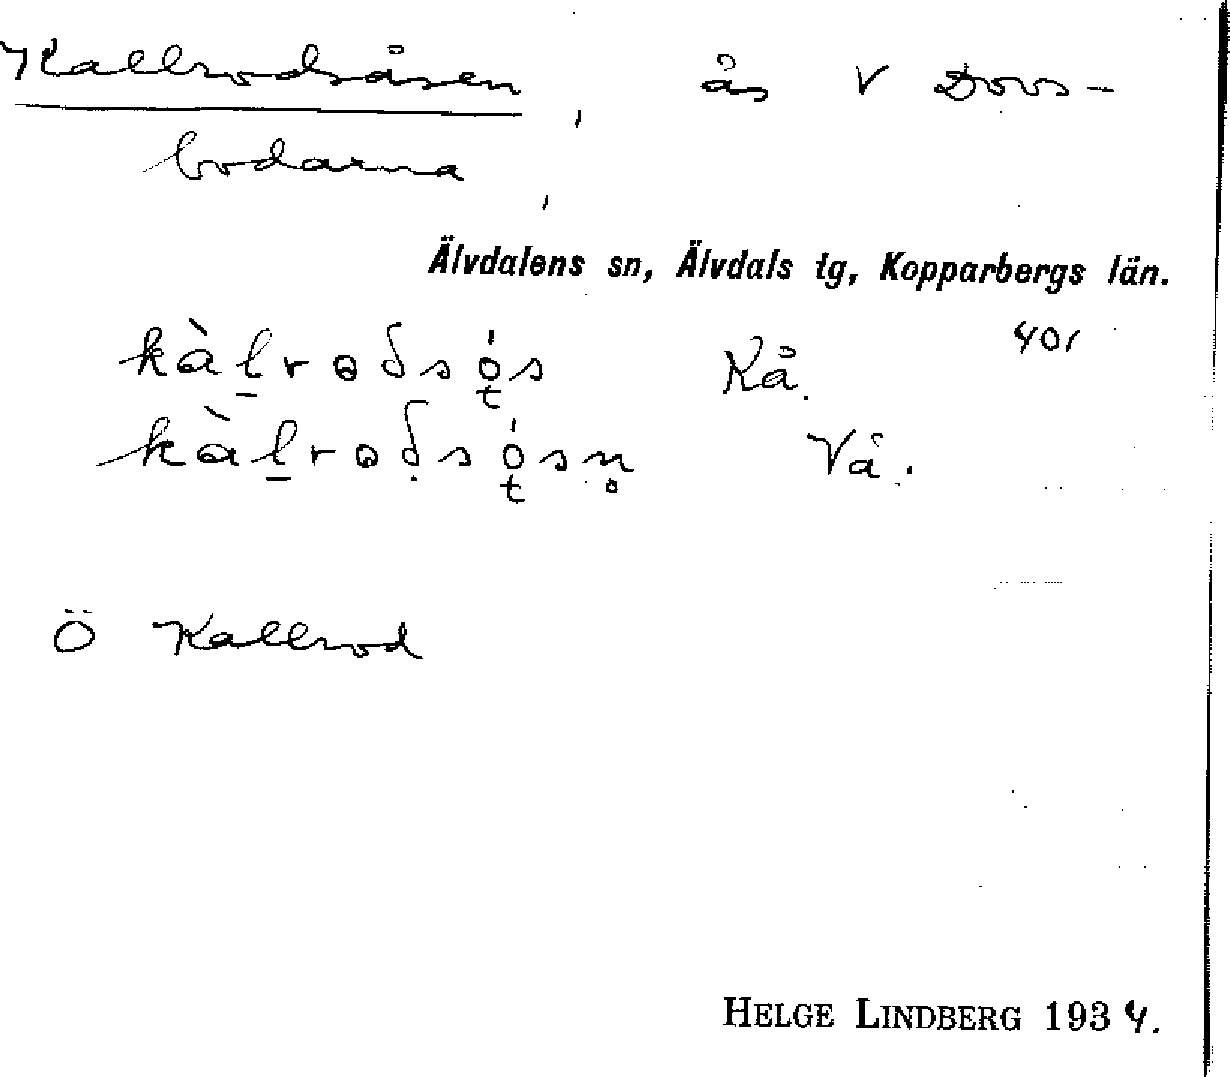 Kallrodsåsen, ås V Dovs-
bodarna,
Älvdalens sn, Älvdals tg, Kopparbergs län.
401
kàl̠rɷδsọ́s Kå.
kàl̠rɷδ̣sọ́sn̥ Vå.
Ö Kallrod
HELGE LINDBERG 1934.